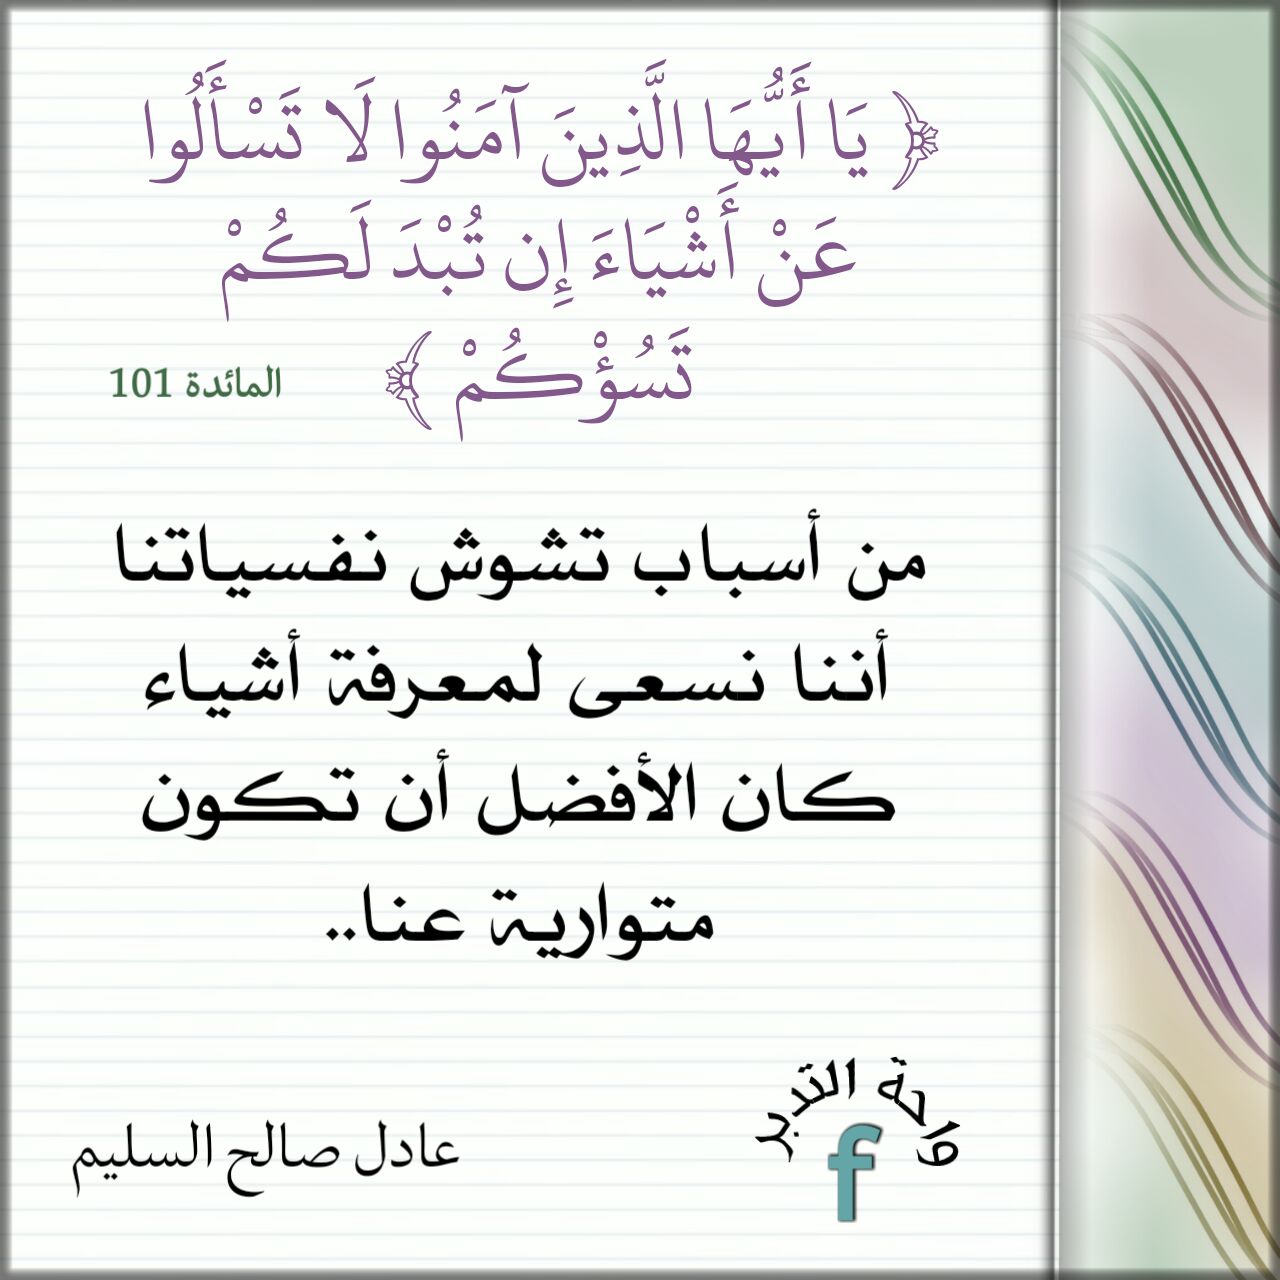 ﴿ يَا أَيُّهَا الَّذِينَ آمَنُوا لَا تَسْأَلُوا
عَنْ أَشْيَاءَ إِن تُبْدَ لَكُمْ
تَسُؤْكُمْ ﴾ المائدة 101
من أسباب تشوش نفسياتنا
أننا نسعى لمعرفة أشياء
كان الأفضل أن تكون
متوارية عنا..
واحة التدبر
f
عادل صالح السليم